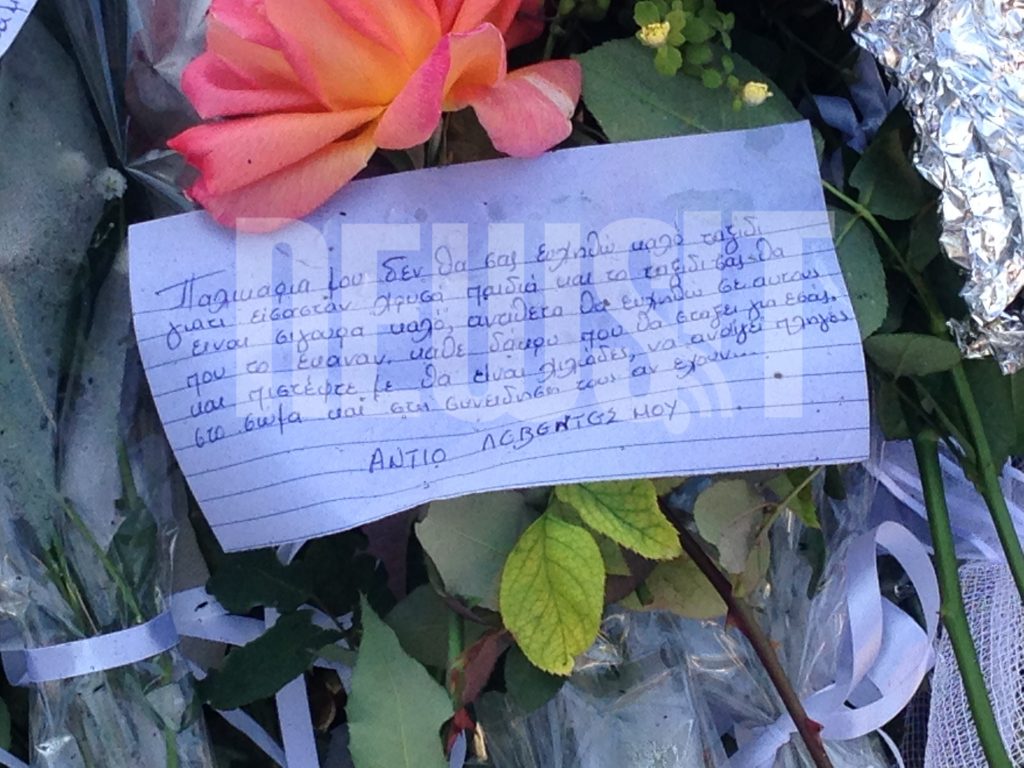 Παλικαρια μου δεν θα σας ευχηθώ καλό ταξίδι
γιατί είσασταν χρυσά παιδιά και το ταξίδι σας θα
είναι σίγουρα καλό, αντίθετα θα ευχηθώ σε αυτούς
που το έκαναν, κάθε δάκρυ που θα στάξει για εσάς,
και πιστέψτε με θα είναι χιλιάδες, να ανοίγει πληγές
στο σώμα και στη συνείδηση τους αν έχουν...
ΑΝΤΙΟ ΛΕΒΕΝΤΕΣ ΜΟΥ
NEWSIT